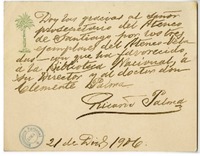 Doy las gracias al Señor
prosecretario del Ateneo
de Santiago por los tres
ejemplares del Ateneo
con que ha favorecido
a la Biblioteca Nacional, a
su Director y al doctor don
Clemente Palma
Ricardo Palma
21 de 1906.